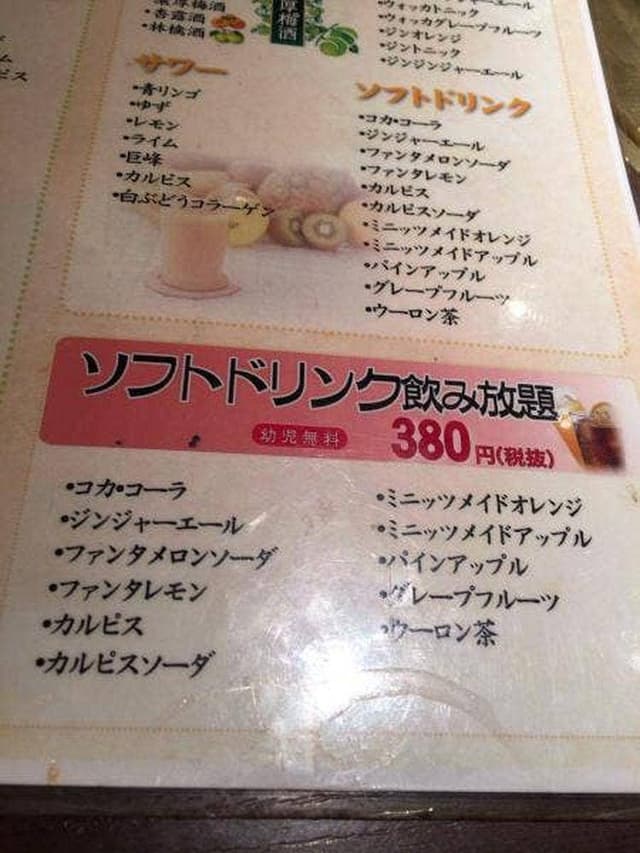 濃厚梅酒
・杏露酒
・林檎酒
厚梅酒
・ウォッカトニック
・ウォッカグレープフルーツ
・ジンオレンジ
・ジントニック
・ジンジンジャーエール
サワー
・青リンゴ
・ゆず
・レモン
・ライム
・巨峰
・カルピス
・白ぶどうコラーゲン
ソフトドリンク
・コカ・コーラ
・ジンジャーエール
・ファンタメロンソーダ
・ファンタレモン
・カルピス
・カルピスソーダ
・ミニッツメイドオレンジ
・ミニッツメイドアップル
・パインアップル
・グレープフルーツ
・ウーロン茶
ソフトドリンク飲み放題
幼児無料 380円(税抜)
・コカ・コーラ
・ジンジャーエール
・ファンタメロンソーダ
・ファンタレモン
・カルピス
・カルピスソーダ
・ミニッツメイドオレンジ
・ミニッツメイドアップル
・パインアップル
・グレープフルーツ
・ウーロン茶